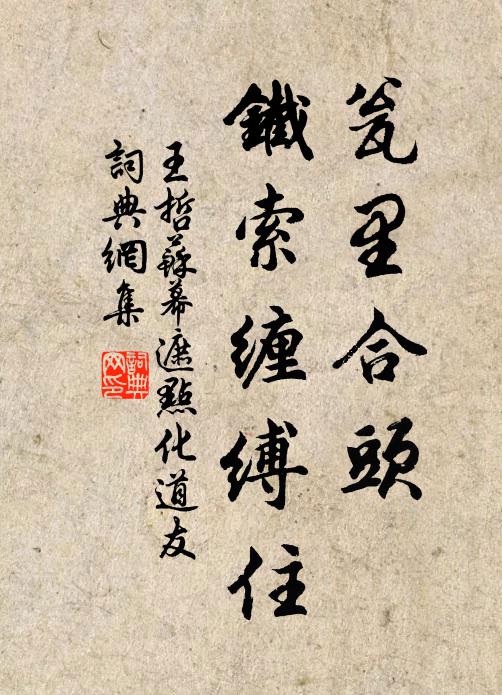 瓮里合頭
鐵索纏縛住
王哲蘇幕遮點化道友
詞典網集
詞典網印